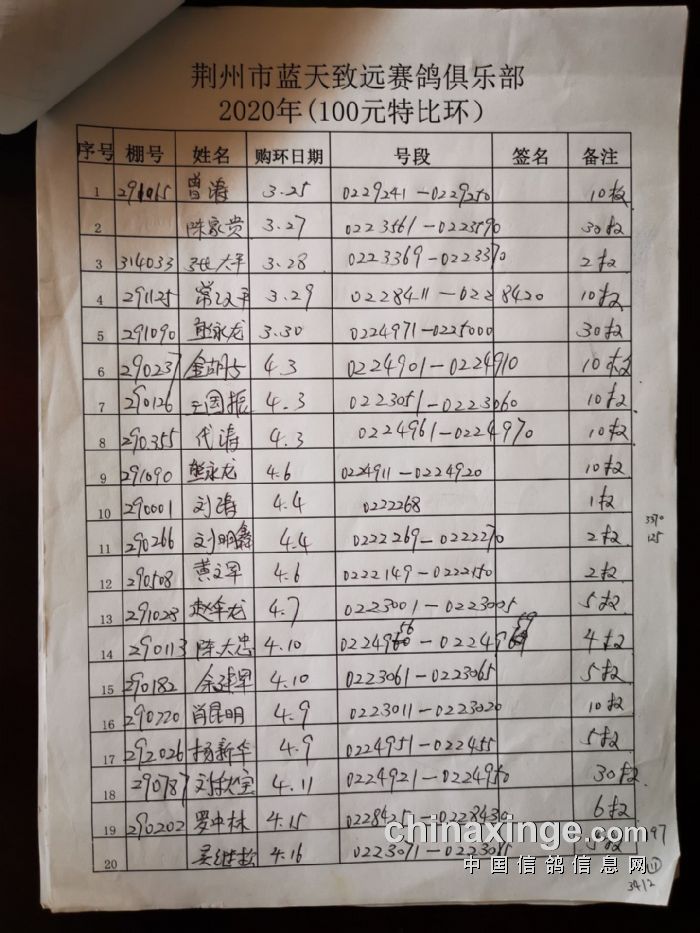 荆州市蓝天致远赛鸽俱乐部
2020年(100元特比环)
序号 棚号 姓名 购环日期 号段 签名 备注
1 291065 曾涛 3.25 0229241-0229250 10枚
2 陈家贵 3.27 0223561-0223590 30枚
3 314033 张大平 3.28 0223369-0223370 2枚
4 291125 常汉平 3.29 0228411-0228420 10枚
5 291090 熊永龙 3.30 0224971-0225000 30枚
6 290237 金胡占 4.3 0224901-0224910 10枚
7 290126 王国振 4.3 0223051-0223060 10枚
8 290355 代涛 4.3 0224961-0224970 10枚
9 291090 熊永龙 4.6 0224911-0224920 10枚
10 290001 刘涛 4.4 0222268 1枚
11 290266 刘明鑫 4.4 0222269-0222270 2枚
12 290508 黄文军 4.6 0222149-0222150 2枚
13 291028 赵华龙 4.7 0223001-0223005 5枚
14 290113 陈大忠 4.10 0224956-0224959 4枚
15 290182 余建军 4.10 0223061-0223065 5枚
16 290720 肖昆明 4.9 0223011-0223020 10枚
17 292026 杨新华 4.9 0224951-022455 5枚
18 290787 刘秋宝 4.11 0224921-0224950 30枚
19 290202 罗中林 4.15 0228425-0228430 6枚
20 吴继松 4.16 0223071-0223075 5枚
125
97
11
3412
chinaxinge.com
中国信鸽信息网